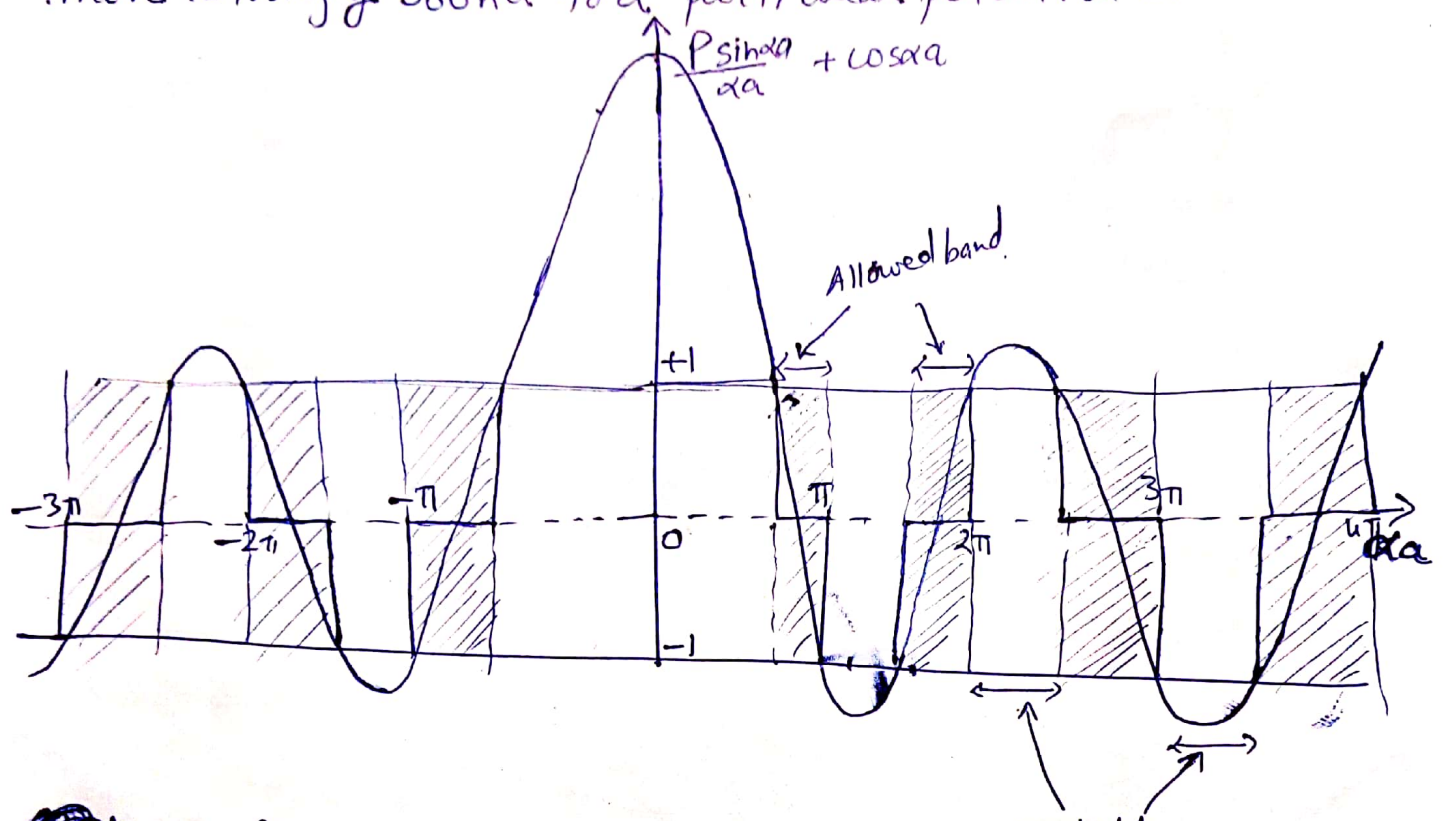 to a
P sinαa
αa
+ cosαa
Allowed band.
+1
-3π
-2π
-π
0
π
2π
3π
4π
αa
-1